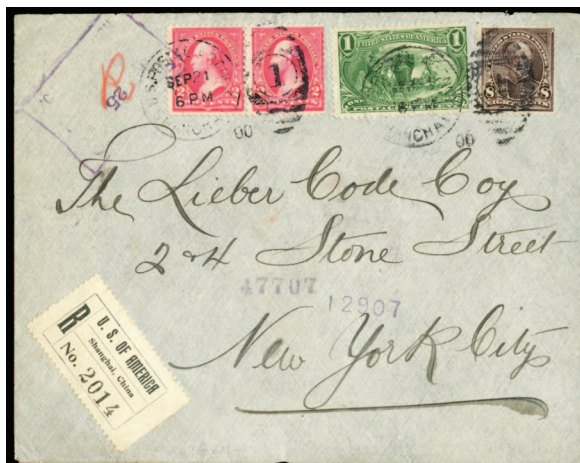 R
25
SEP 21
6 P.M
00
2
2
1
1
UNITED STATES OF AMERICA
1
00
8
8
EIGHT CENTS
The Lieber Code Coy
2 & 4 Stone Street
47707
12907
New York City
R
U. S. OF AMERICA
Shanghai, China
No. 2014